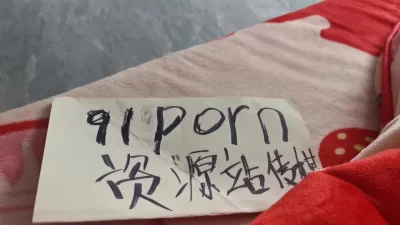 91porn
资源站传媒